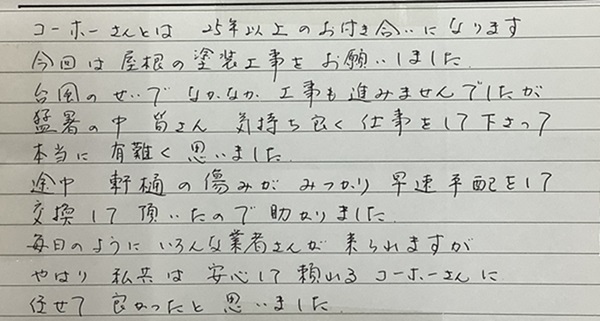 コーホーさんとは 25年以上のお付き合いになります
今回は屋根の塗装工事をお願いしました.
台風のせいでなかなか工事も進みませんでしたが
猛暑の中 皆さん 気持ち良く仕事をして下さって
本当に有難く思いました.
途中 軒樋の傷みがみつかり 早速手配をして
交換して頂いたので助かりました.
毎日のようにいろんな業者さんが来られますが
やはり 私共は 安心して頼れるコーホーさんに
任せて良かったと思いました.